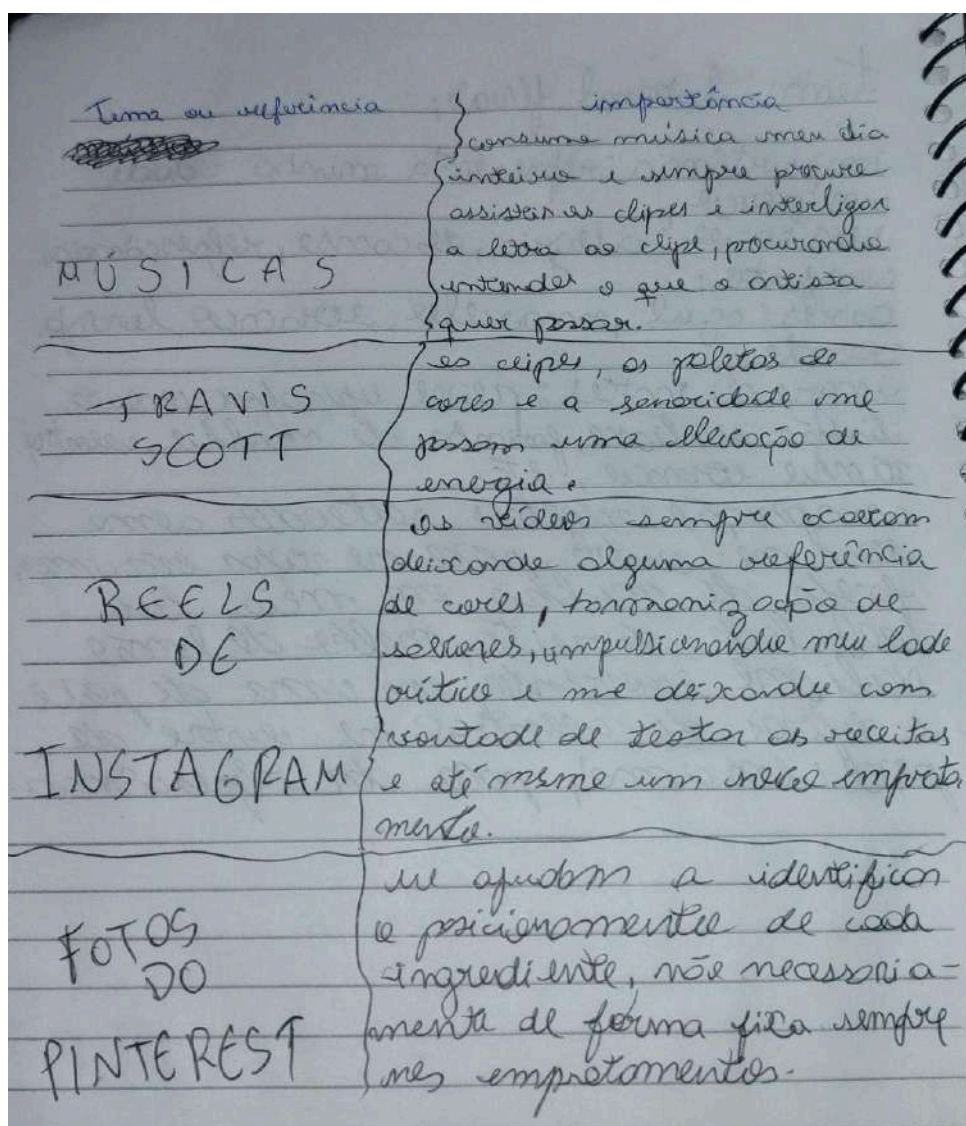 Tema ou referência
importância
consumo música meu dia
inteiro e sempre procuro
assistir os clipes e interligar
a letra ao clipe, procurando
entender o que o artista
quer passar.
MÚSICAS
os clipes, as paletas de
cores e a sonoridade me
passam uma elevação de
energia.
TRAVIS
SCOTT
os vídeos sempre acabam
deixando alguma referência
de cores, harmonização de
sabores, impulsionando meu lado
crítico e me deixando com
vontade de testar as receitas
e até mesmo um novo emprata
mento.
REELS
DE
INSTAGRAM
me ajudam a identificar
o posicionamento de cada
ingrediente, não necessaria-
mente de forma fixa sempre
nos empratamentos.
FOTOS
DO
PINTEREST